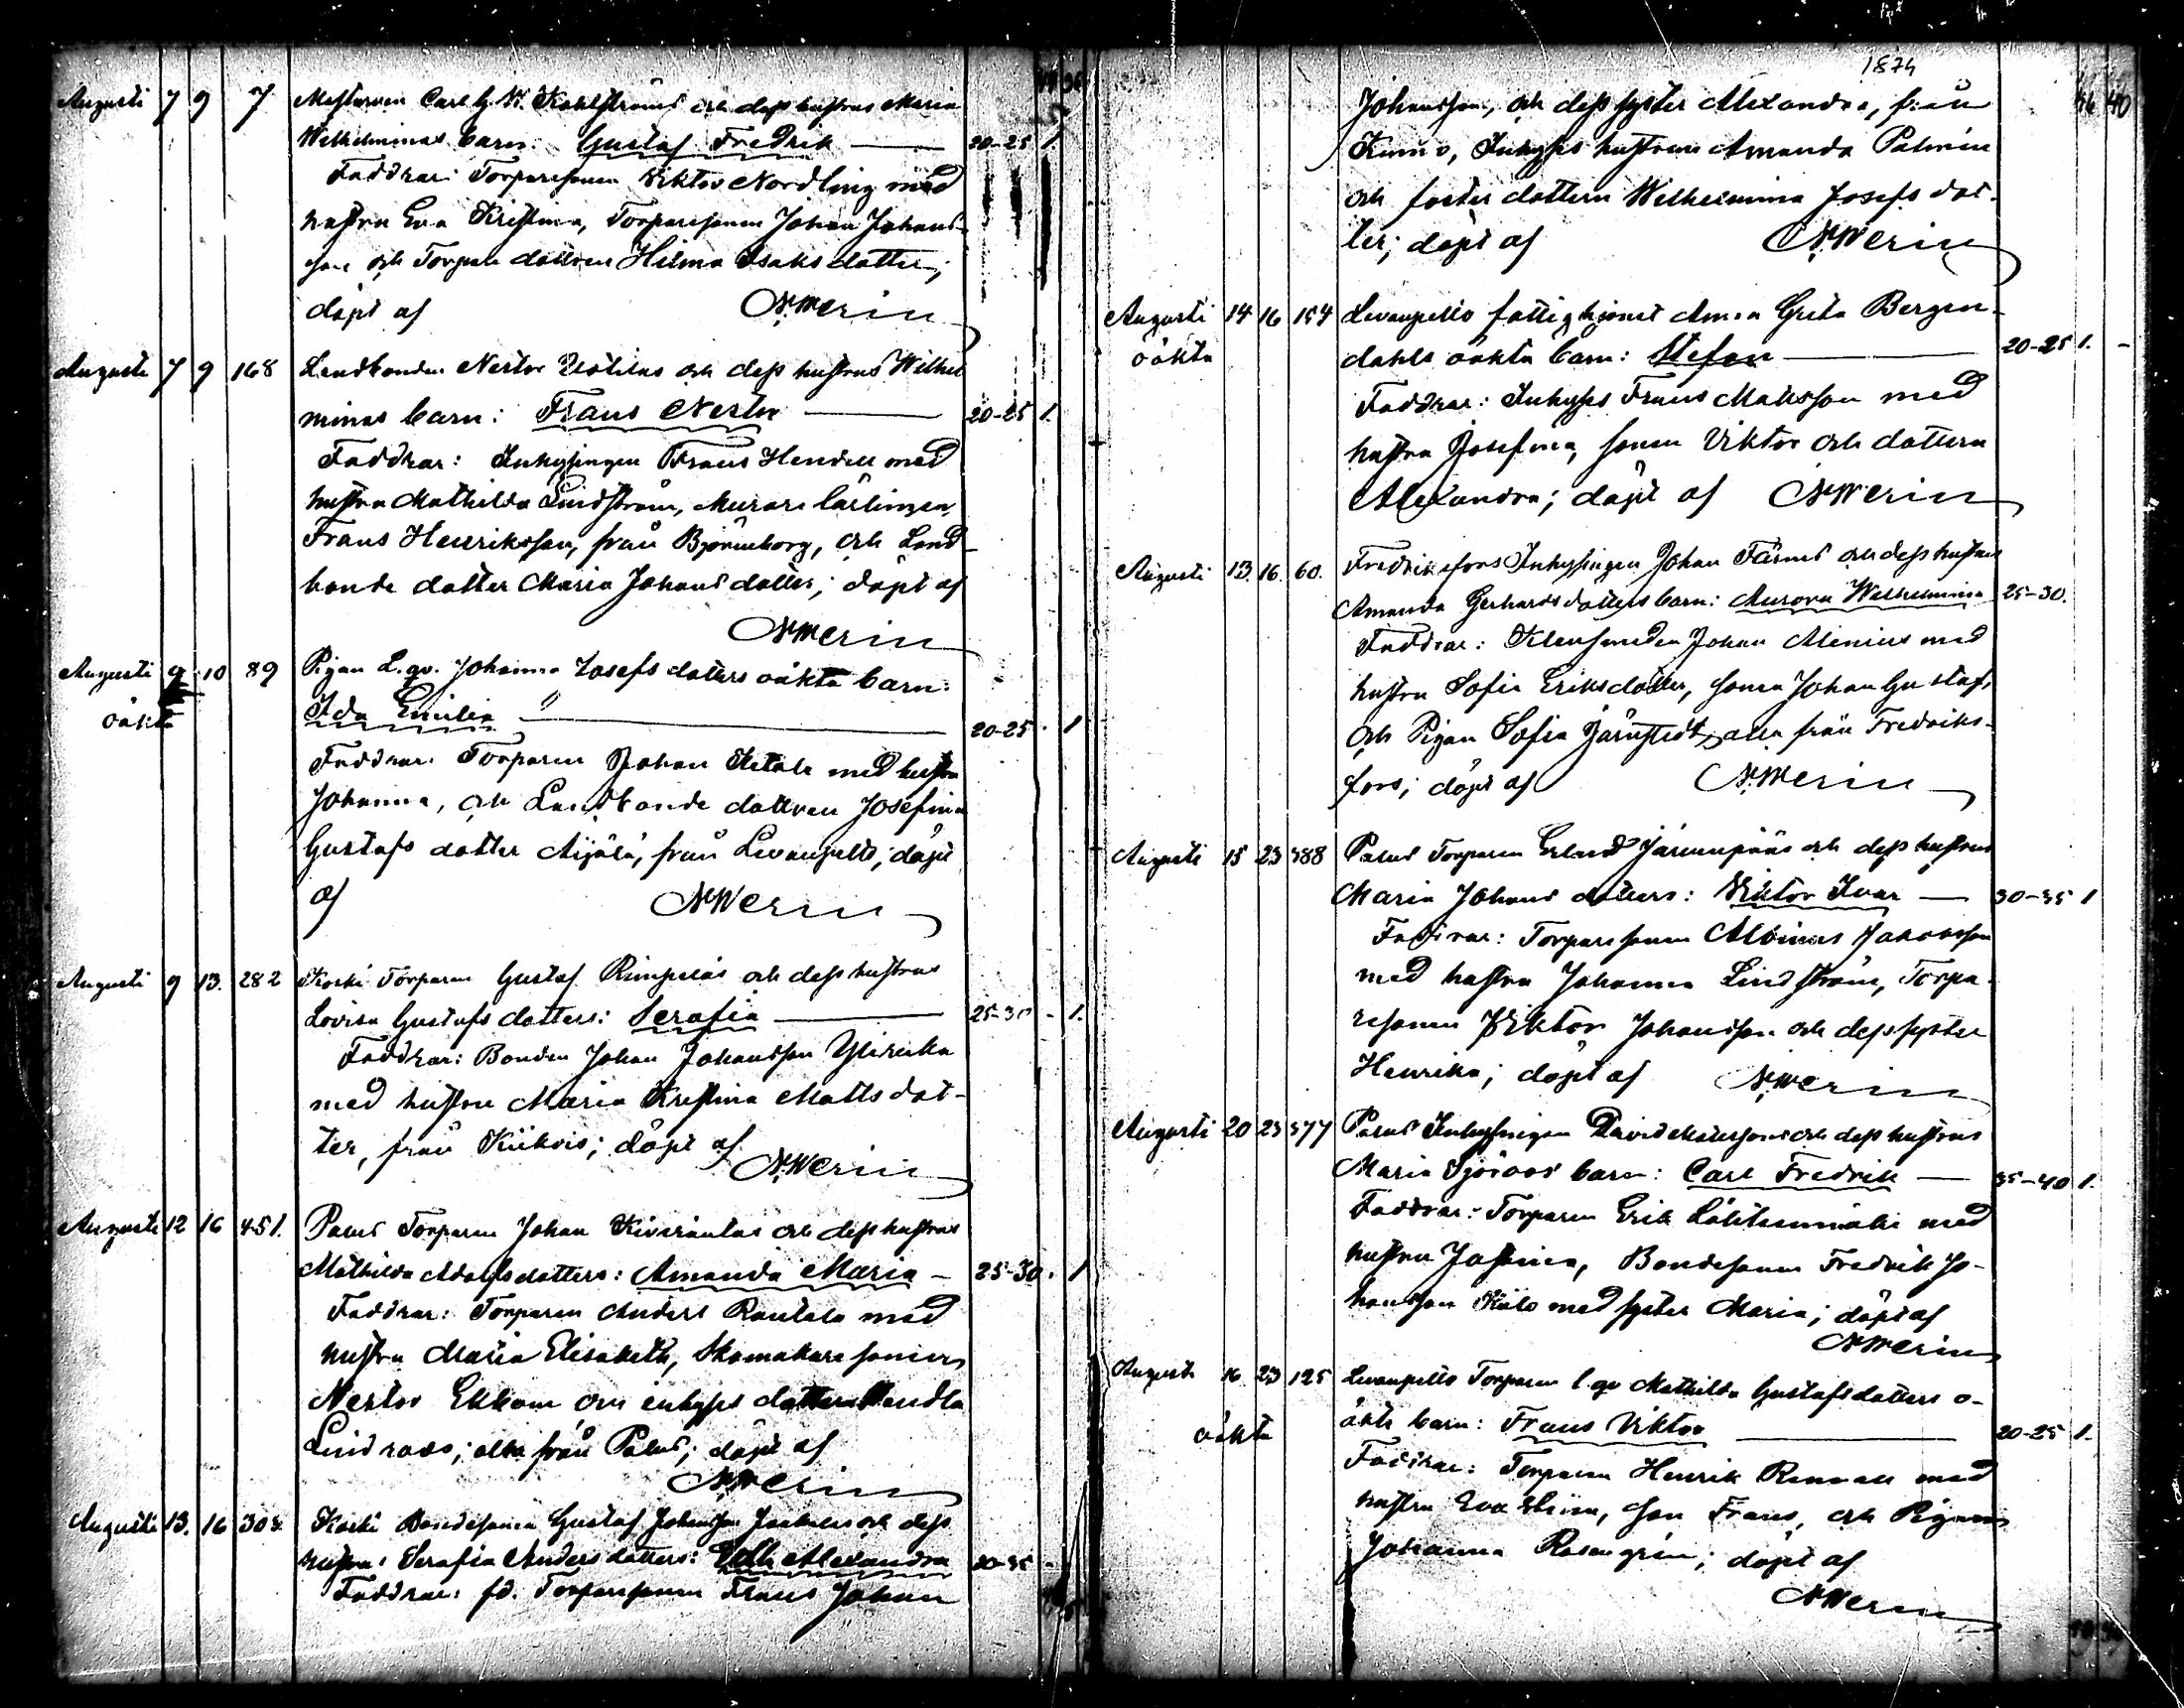 Augusti 7 9 7 Mästaren Carl G. W. Kahlströms och dess hustrus Maria
Wilhelminas barn: Gustaf Fredrik — 20-25 1.
Faddrar: Torparesonen Viktor Nordling med
hustru Eva Kristina, Torparesonen Johan Johans-
son och Torpare dottren Hilma Isaksdotter;
döpt af N. Merin
Augusti 7 9 168 Landbonden Nestor och dess hustrus Wilhel
minas barn: Frans Nestor — 20-25 1.
Faddrar: Inhysingen Frans Hendell med
hustru Mathilda Lindström, Murare lärlingen
Frans Henriksson, från Björneborg, och Land
bonde dotter Maria Johansdotter; döpt af
N Merin
Augusti 9 10 89 Pigan L. gv. Johanna Josefsdotters oäkta barn:
oäkta Ida Emilia — 20-25 . 1
Faddrar: Torparen Johan Ketala med hustru
Johanna, och Landbonde dottren Josefina
Gustafsdotter Äijälä, från Levanpelto; döpt
af N Merin
Augusti 9 13. 282 Koski Torparen Gustaf Rimpeläs och dess hustrus
Lovisa Gustafsdotters: Serafia — 25-30 - 1.
Faddrar: Bonden Johan Johansson
med hustru Maria Kristina Mattsdot-
ter, från Kiikois; döpt af N. Merin
Augusti 12 16 451. Palus Torparen Johan Kivirantas och dess hustrus
Mathilda Adolfsdotters: Amanda Maria — 25-30 . 1
Faddrar: Torparen Anders Rantala med
hustru Maria Elisabeth, Skomakare sonen
Nestor Ekbom och inhyses dottren Hendla
Lindroos; alla från Palus; döpt af
N Merin
Augusti 13. 16 303. Koski Bondesonen Gustaf Johansson och dess
hustrus Serafia Andersdotters: Alexandra
Faddrar: fd. Torparesonen Frans Johan
1874
Johansson, och dess syster Alexandra, från
Kumo, Inhyses hustrun Amanda Palmén
och foster dottern Wilhelmina Josefsdot-
ter; döpt af N. Merin
Augusti 14 16 154 Levanpelto fattighjonet Anna Greta Bergen-
oäkta dahls oäkta barn: Stefan — 20-25 1. -
Faddrar: Inhyses Frans Matsson med
hustru Josefina, sonen Viktor och dottern
Alexandra; döpt af N Merin
Augusti 13. 16. 60. Fredriksfors Inhysingen Johan och dess hustrus
Amanda Gerhardsdotters barn: Aurora Wilhelmina 25-30.
Faddrar: Klensmeden Johan Alenius med
hustru Sofia Eriksdotter, sonen Johan Gustaf,
och Pigan Sofia Järnstedt, alla från Fredriks-
fors; döpt af N. Merin
Augusti 15 23 388 Palus Torparen Erland Järvenpääs och dess hustrus
Maria Johansdotters: Viktor Ivar — 30-35 1
Faddrar: Torparesonen Albinus Jakobsson
med hustru Johanna Lindström, Torpa-
resonen Viktor Johansson och dess syster
Henrika; döpt af N. Merin
Augusti 20 23 377 Palus Inhysingen David och dess hustrus
Maria Sjöroos barn: Carl Fredrik — 35-40 1.
Faddrar: Torparen Erik med
hustru Josefina, Bondesonen Fredrik Jo-
hansson med syster Maria; döpt af
N Merin
Augusti 16 23 125 Levanpelto Torparen l. gv Mathilda Gustafsdotters o-
oäkta äkta barn: Frans Viktor — 20-25 1.
Faddrar: Torparen Henrik med
hustru Eva Stina, son Frans, och Pigan
Johanna Rosengrén; döpt af
N Merin